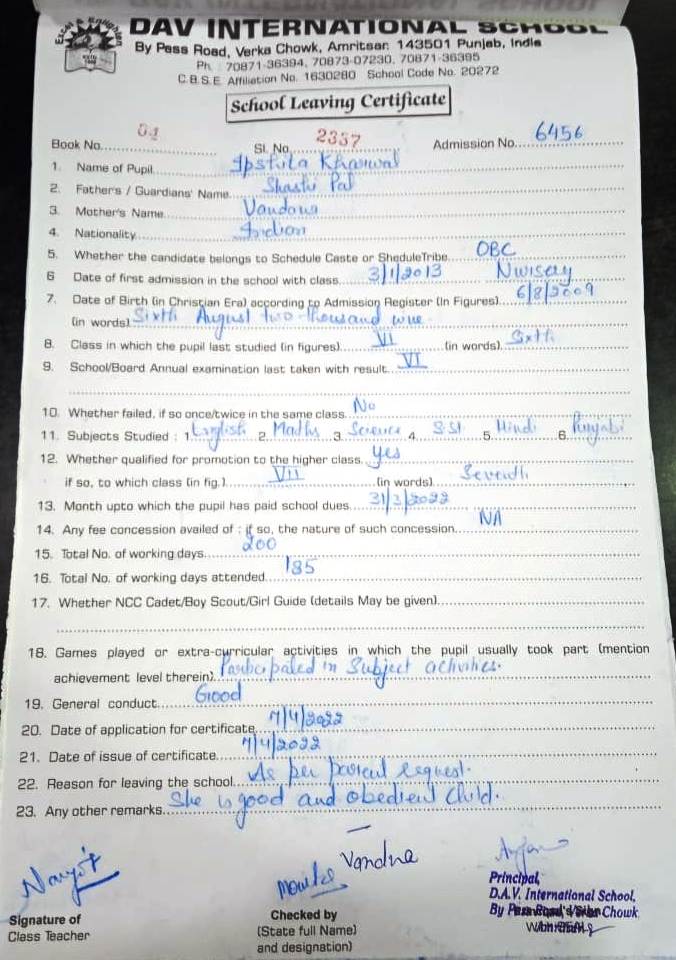 DAV INTERNATIONAL SCHOOL
By Pass Road, Verka Chowk, Amritsar. 143501 Punjab, India
Ph : 70871-36394, 70873-07230, 70871-36395
C.B.S.E. Affiliation No. 1630280 School Code No. 20272
School Leaving Certificate
Book No. 04 Sl. No. 2337 Admission No. 6456
1. Name of Pupil Ipshita Kharwal
2. Father's / Guardians' Name Shashi Pal
3. Mother's Name Vandana
4. Nationality Indian
5. Whether the candidate belongs to Schedule Caste or SheduleTribe OBC
6 Date of first admission in the school with class 3/1/2013 Nursery
7. Date of Birth (in Christian Era) according to Admission Register (In Figures) 6/8/2009
(in words) Sixth August two thousand nine
8. Class in which the pupil last studied (in figures) VI (in words) Sixth
9. School/Board Annual examination last taken with result VI
10. Whether failed, if so once/twice in the same class No
11. Subjects Studied : 1 English 2 Maths 3 Science 4 S.St 5 Hindi 6 Punjabi
12. Whether qualified for promotion to the higher class yes
if so, to which class (in fig.) VII (in words) Seventh
13. Month upto which the pupil has paid school dues 31/3/2022
14. Any fee concession availed of : if so, the nature of such concession NA
15. Total No. of working days 200
16. Total No. of working days attended 185
17. Whether NCC Cadet/Boy Scout/Girl Guide (details May be given)
18. Games played or extra-curricular activities in which the pupil usually took part (mention
achievement level therein) Participated in Subject activities.
19. General conduct Good
20. Date of application for certificate 7/4/2022
21. Date of issue of certificate 7/4/2022
22. Reason for leaving the school As per parent request.
23. Any other remarks She is good and obedient child.
Vandna
Principal,
D.A.V. International School,
By Chowk
Signature of
Class Teacher
Checked by
(State full Name)
and designation)